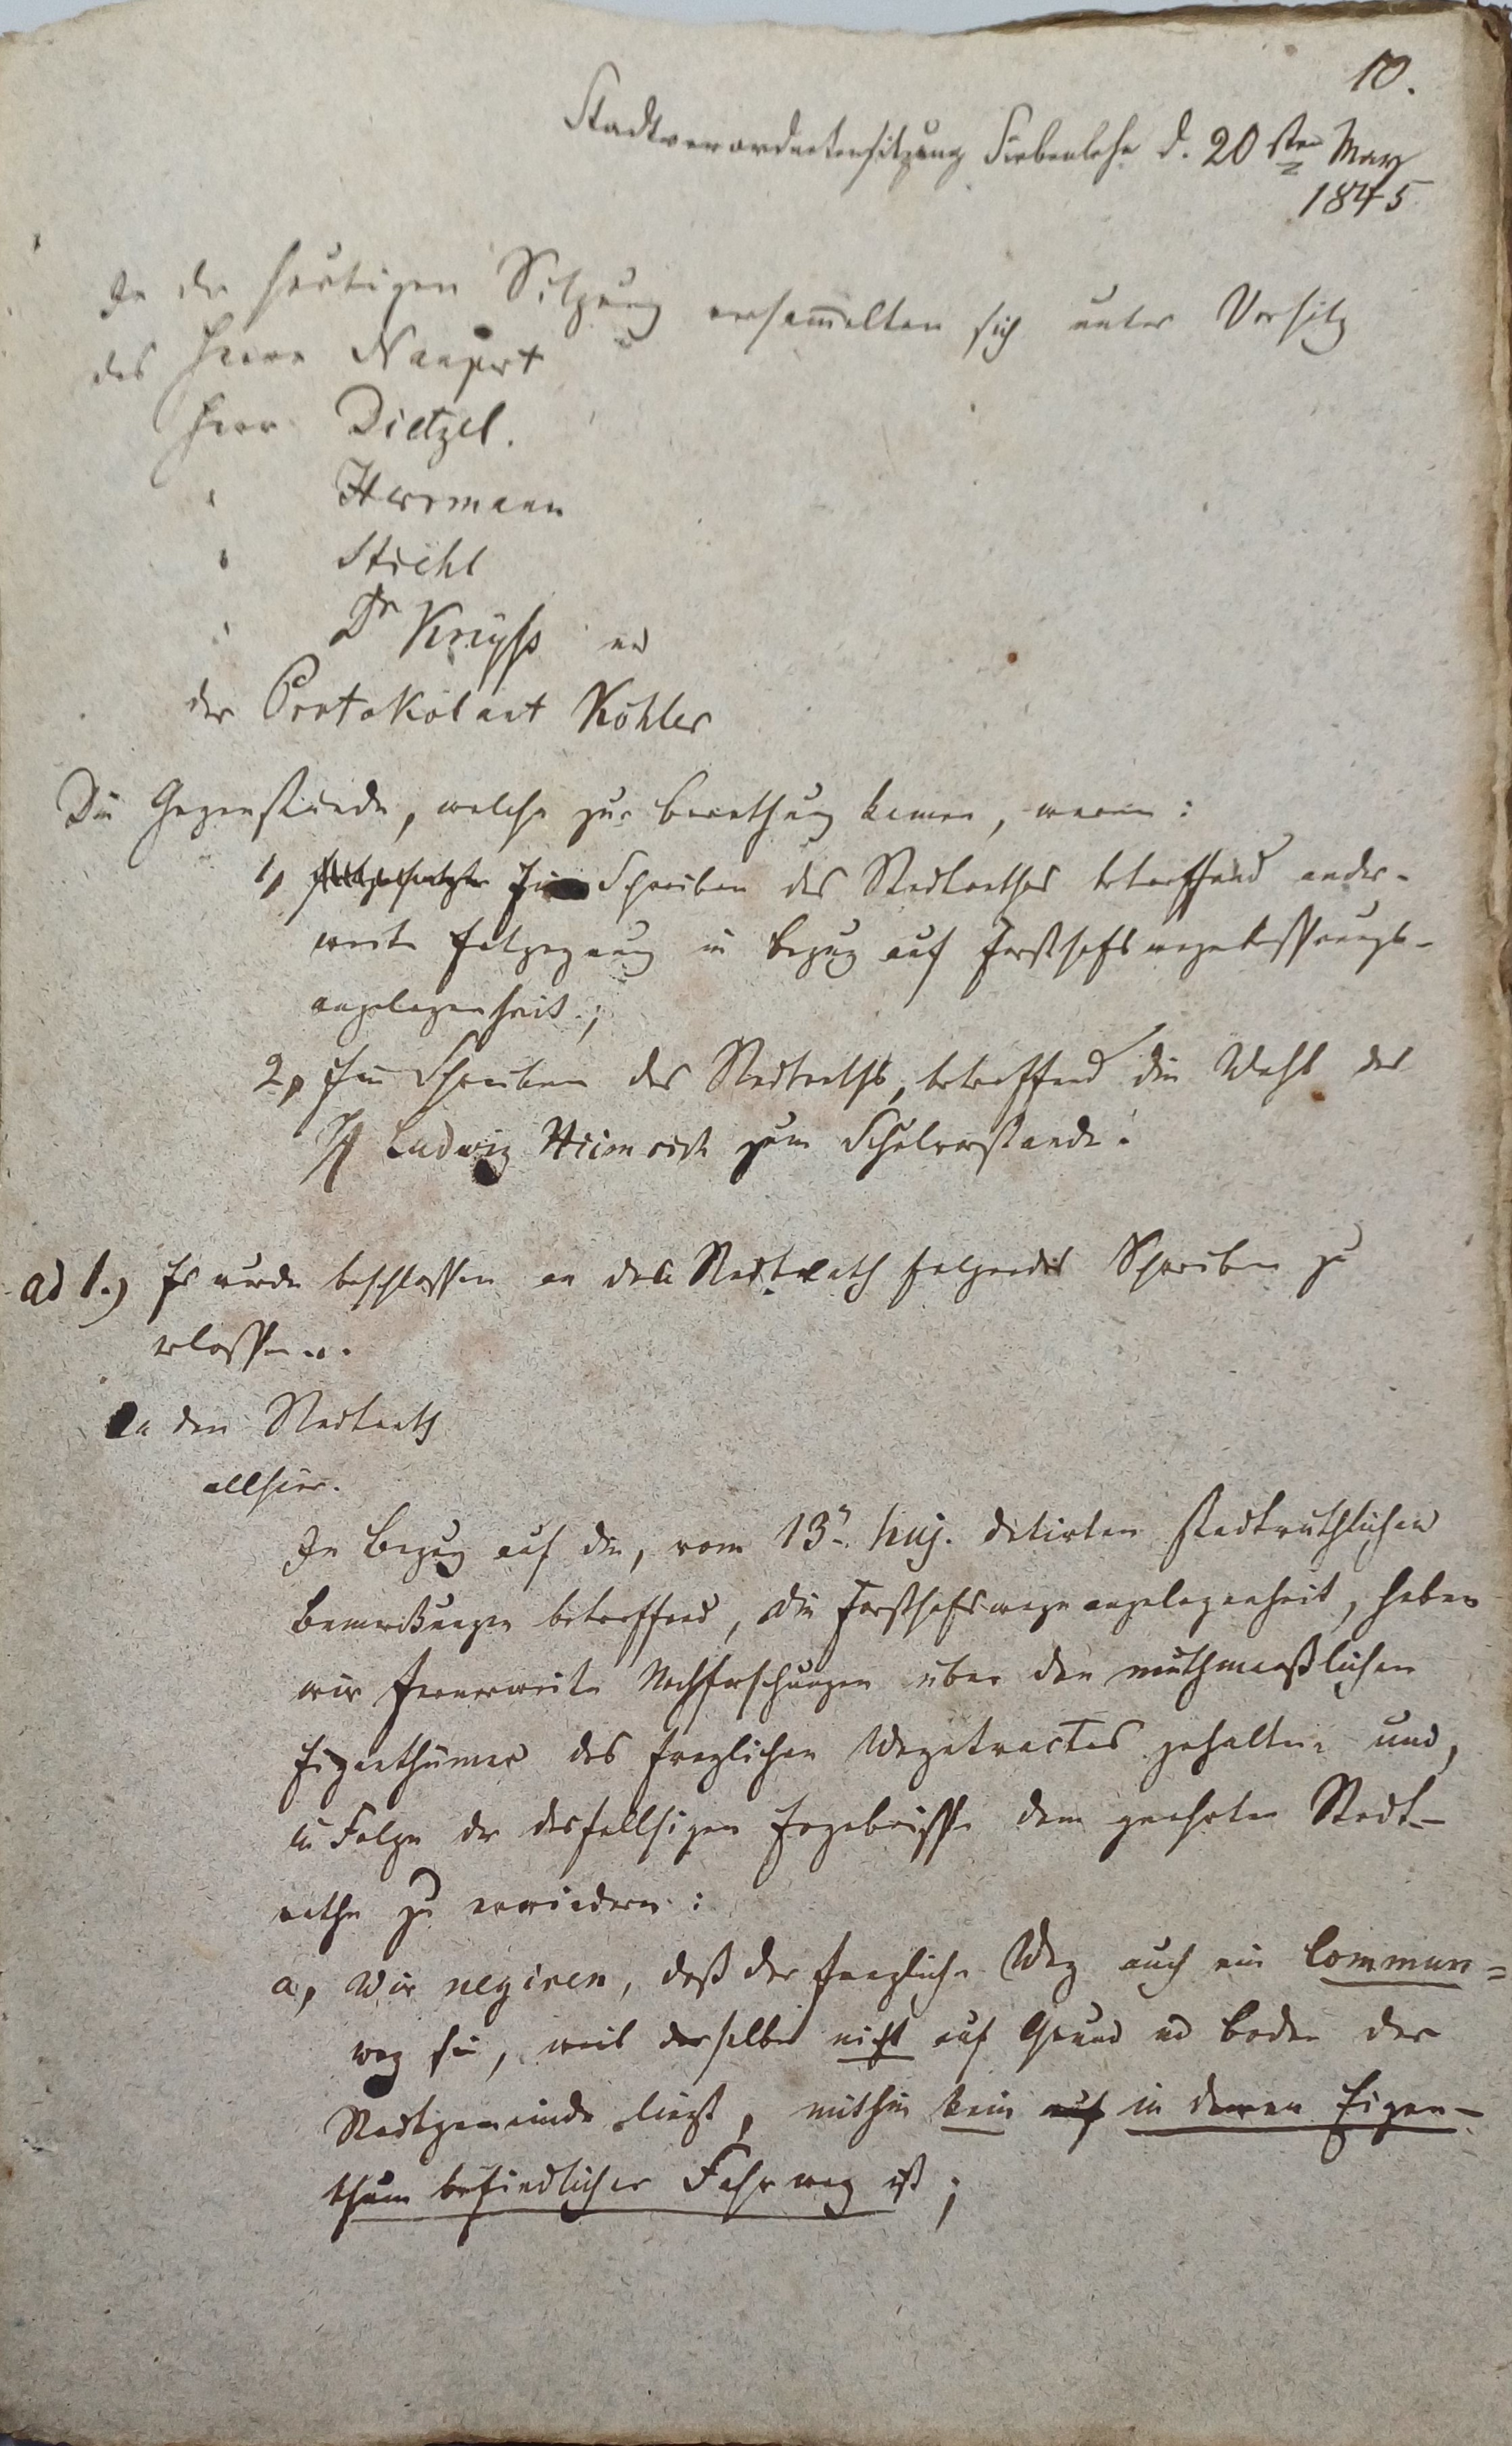 10.
Stadtverordnetensitzung Siebenlehn d. 20sten May
1845
In der heutigen Sitzung versam̅elten sich unter Vorsitz
des Herrn Naupert
Herr Dietzel.
" Herrmann
" Stiehl
" Dr Kreyß und
der Protokolant Köhler
Die Gegenstände, welche zur Berathung kamen, waren:
1, Ein Schreiben des Stadtrathes betreffend ander-
weite Entgegnung in Bezug auf Forsthofswegebesserungs-
angelegenheit;
2, Ein Schreiben des Stadtraths, betreffend die Wahl des
Ludwig Heinrich zum Schulvorstande.
ad 1.) Es wurde beschlossen an den Stadtrath folgendes Schreiben zu
erlassen.
An den Stadtrath
allhier.
In Bezug auf die, vom 13n. huj. datirten stadträthlichen
Bemerkungen betreffend, die Forsthofswegeangelegenheit, haben
wir fernerweite Nachforschungen über den muthmaaßlichen
Eigenthümer des fraglichen Wegetractes gehalten und,
in Folge der desfallsigen Ergebnisse dem geehrten Stadt-
rathe zu erwiedern:
a, Wir negiren, daß der fragliche Weg auch ein Commun=
weg sei, weil derselbe nicht auf Grund und Boden der
Stadtgemeinde liegt, mithin kein auf in deren Eigen-
thum befindlicher Fahrweg ist;